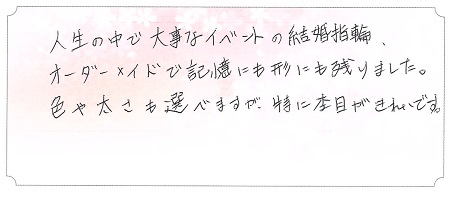 人生の中で大事なイベントの結婚指輪、
オーダーメイドで記憶にも形にも残りました。
色や太さも選べますが、特に杢目がきれいです。